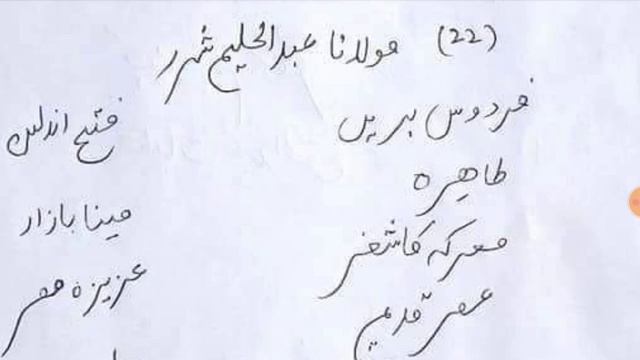 (22) مولانا عبدالحلیم شرر
فردوس بریں
فتح اندلس
طاہرہ
مینا بازار
معرکہ کاشغر
عزیزہ مصر
عصر قدیم